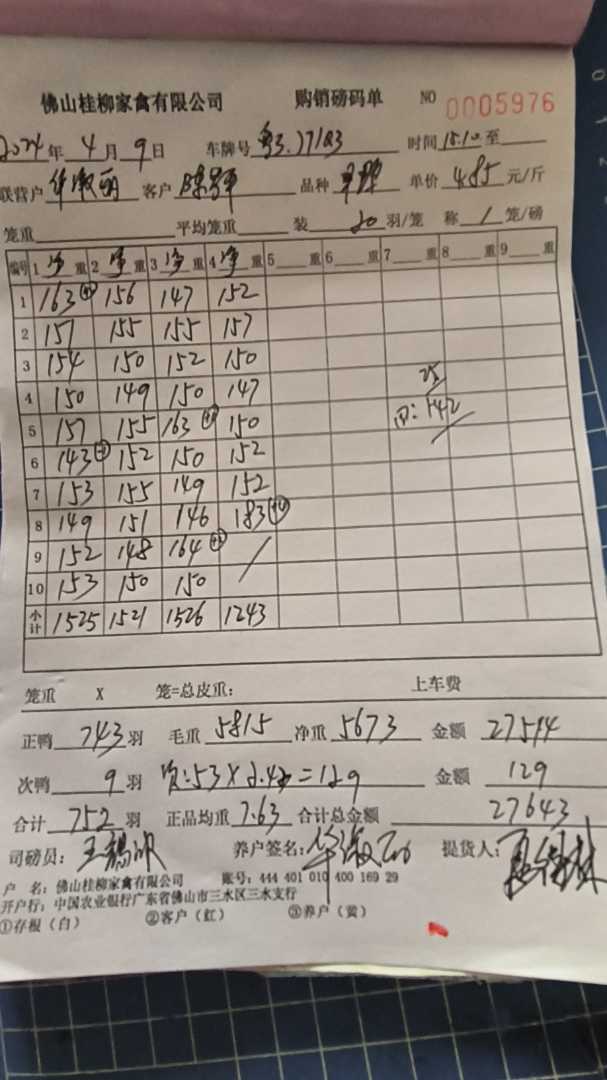 佛山桂柳家禽有限公司 购销磅码单 NO 0005976
2024年 4月 9日 车牌号 时间 15.10 至
联营户 华淑丽 客户 品种 单价 4.85 元/斤
笼重 平均笼重 装 20 羽/笼 称 1 笼/磅
编号 1 净 重 2 净 重 3 净 重 4 净 重 5 重 6 重 7 重 8 重 9 重
1 163 156 147 152
2 157 155 155 157
3 154 150 152 150
4 150 149 150 147
25
5 157 155 163 150
皿: 142
6 143 152 150 152
7 153 155 149 152
8 149 151 146 183
9 152 148 164 /
10 153 150 150
小计 1525 1521 1526 1243
笼重 X 笼=总皮重: 上车费
正鸭 743 羽 毛重 5815 净重 5673 金额 27514
次鸭 9 羽 次:53 X 2.43 = 129 金额 129
合计 752 羽 正品均重 7.63 合计总金额 27643
司磅员: 养户签名: 华淑丽 提货人:
户 名: 佛山桂柳家禽有限公司 账号: 444 401 010 400 169 29
开户行: 中国农业银行广东省佛山市三水区三水支行
①存根（白） ②客户（红） ③养户（黄）